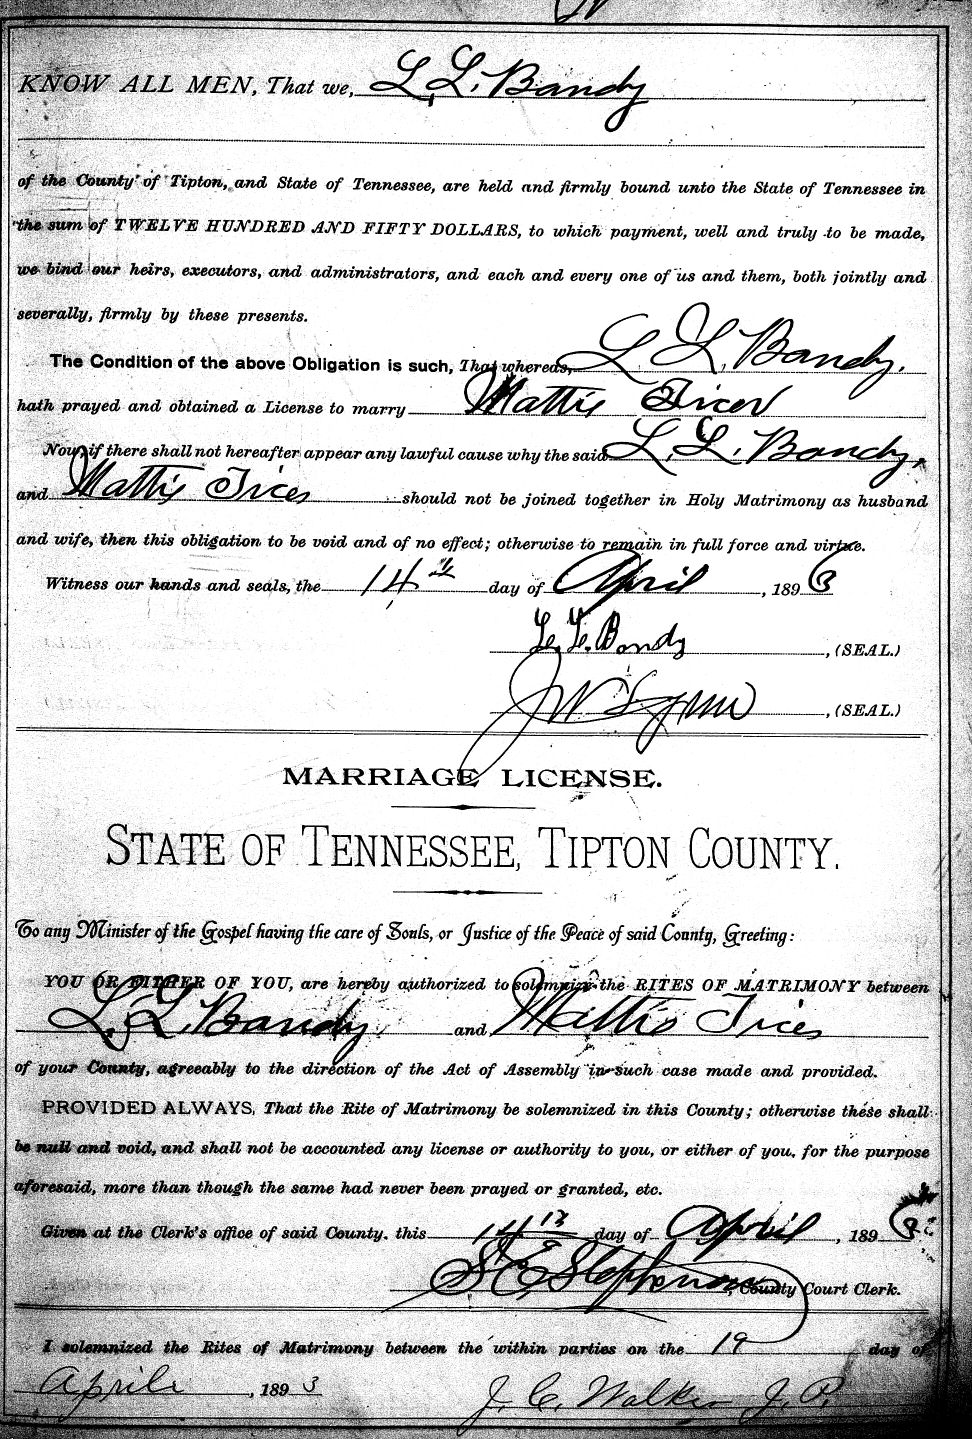 KNOW ALL MEN, That we, L. L. Bandy
of the County of Tipton, and State of Tennessee, are held and firmly bound unto the State of Tennessee in
the sum of TWELVE HUNDRED AND FIFTY DOLLARS, to which payment, well and truly to be made,
we bind our heirs, executors, and administrators, and each and every one of us and them, both jointly and
severally, firmly by these presents.
The Condition of the above Obligation is such, That whereas, L. L. Bandy.
hath prayed and obtained a License to marry Mattie
Now, if there shall not hereafter appear any lawful cause why the said L. L. Bandy,
and Mattie Trices should not be joined together in Holy Matrimony as husband
and wife, then this obligation to be void and of no effect; otherwise to remain in full force and virtue.
Witness our hands and seals, the 14th day of April, 1893
L. L. Bandy, (SEAL.)
J W, (SEAL.)
MARRIAGE LICENSE.
STATE OF TENNESSEE, TIPTON COUNTY.
To any Minister of the Gospel having the care of Souls, or Justice of the Peace of said County, Greeting:
YOU OR EITHER OF YOU, are hereby authorized to solemnize the RITES OF MATRIMONY between
L. L. Bandy and Mattie Trices
of your County, agreeably to the direction of the Act of Assembly in such case made and provided.
PROVIDED ALWAYS, That the Rite of Matrimony be solemnized in this County; otherwise these shall
be null and void, and shall not be accounted any license or authority to you, or either of you, for the purpose
aforesaid, more than though the same had never been prayed or granted, etc.
Given at the Clerk's office of said County, this 14th day of April, 1893
S E Stephenson, County Court Clerk.
I solemnized the Rites of Matrimony between the within parties on the 19 day of
Aprile, 1893 J. C. Walker J. P.